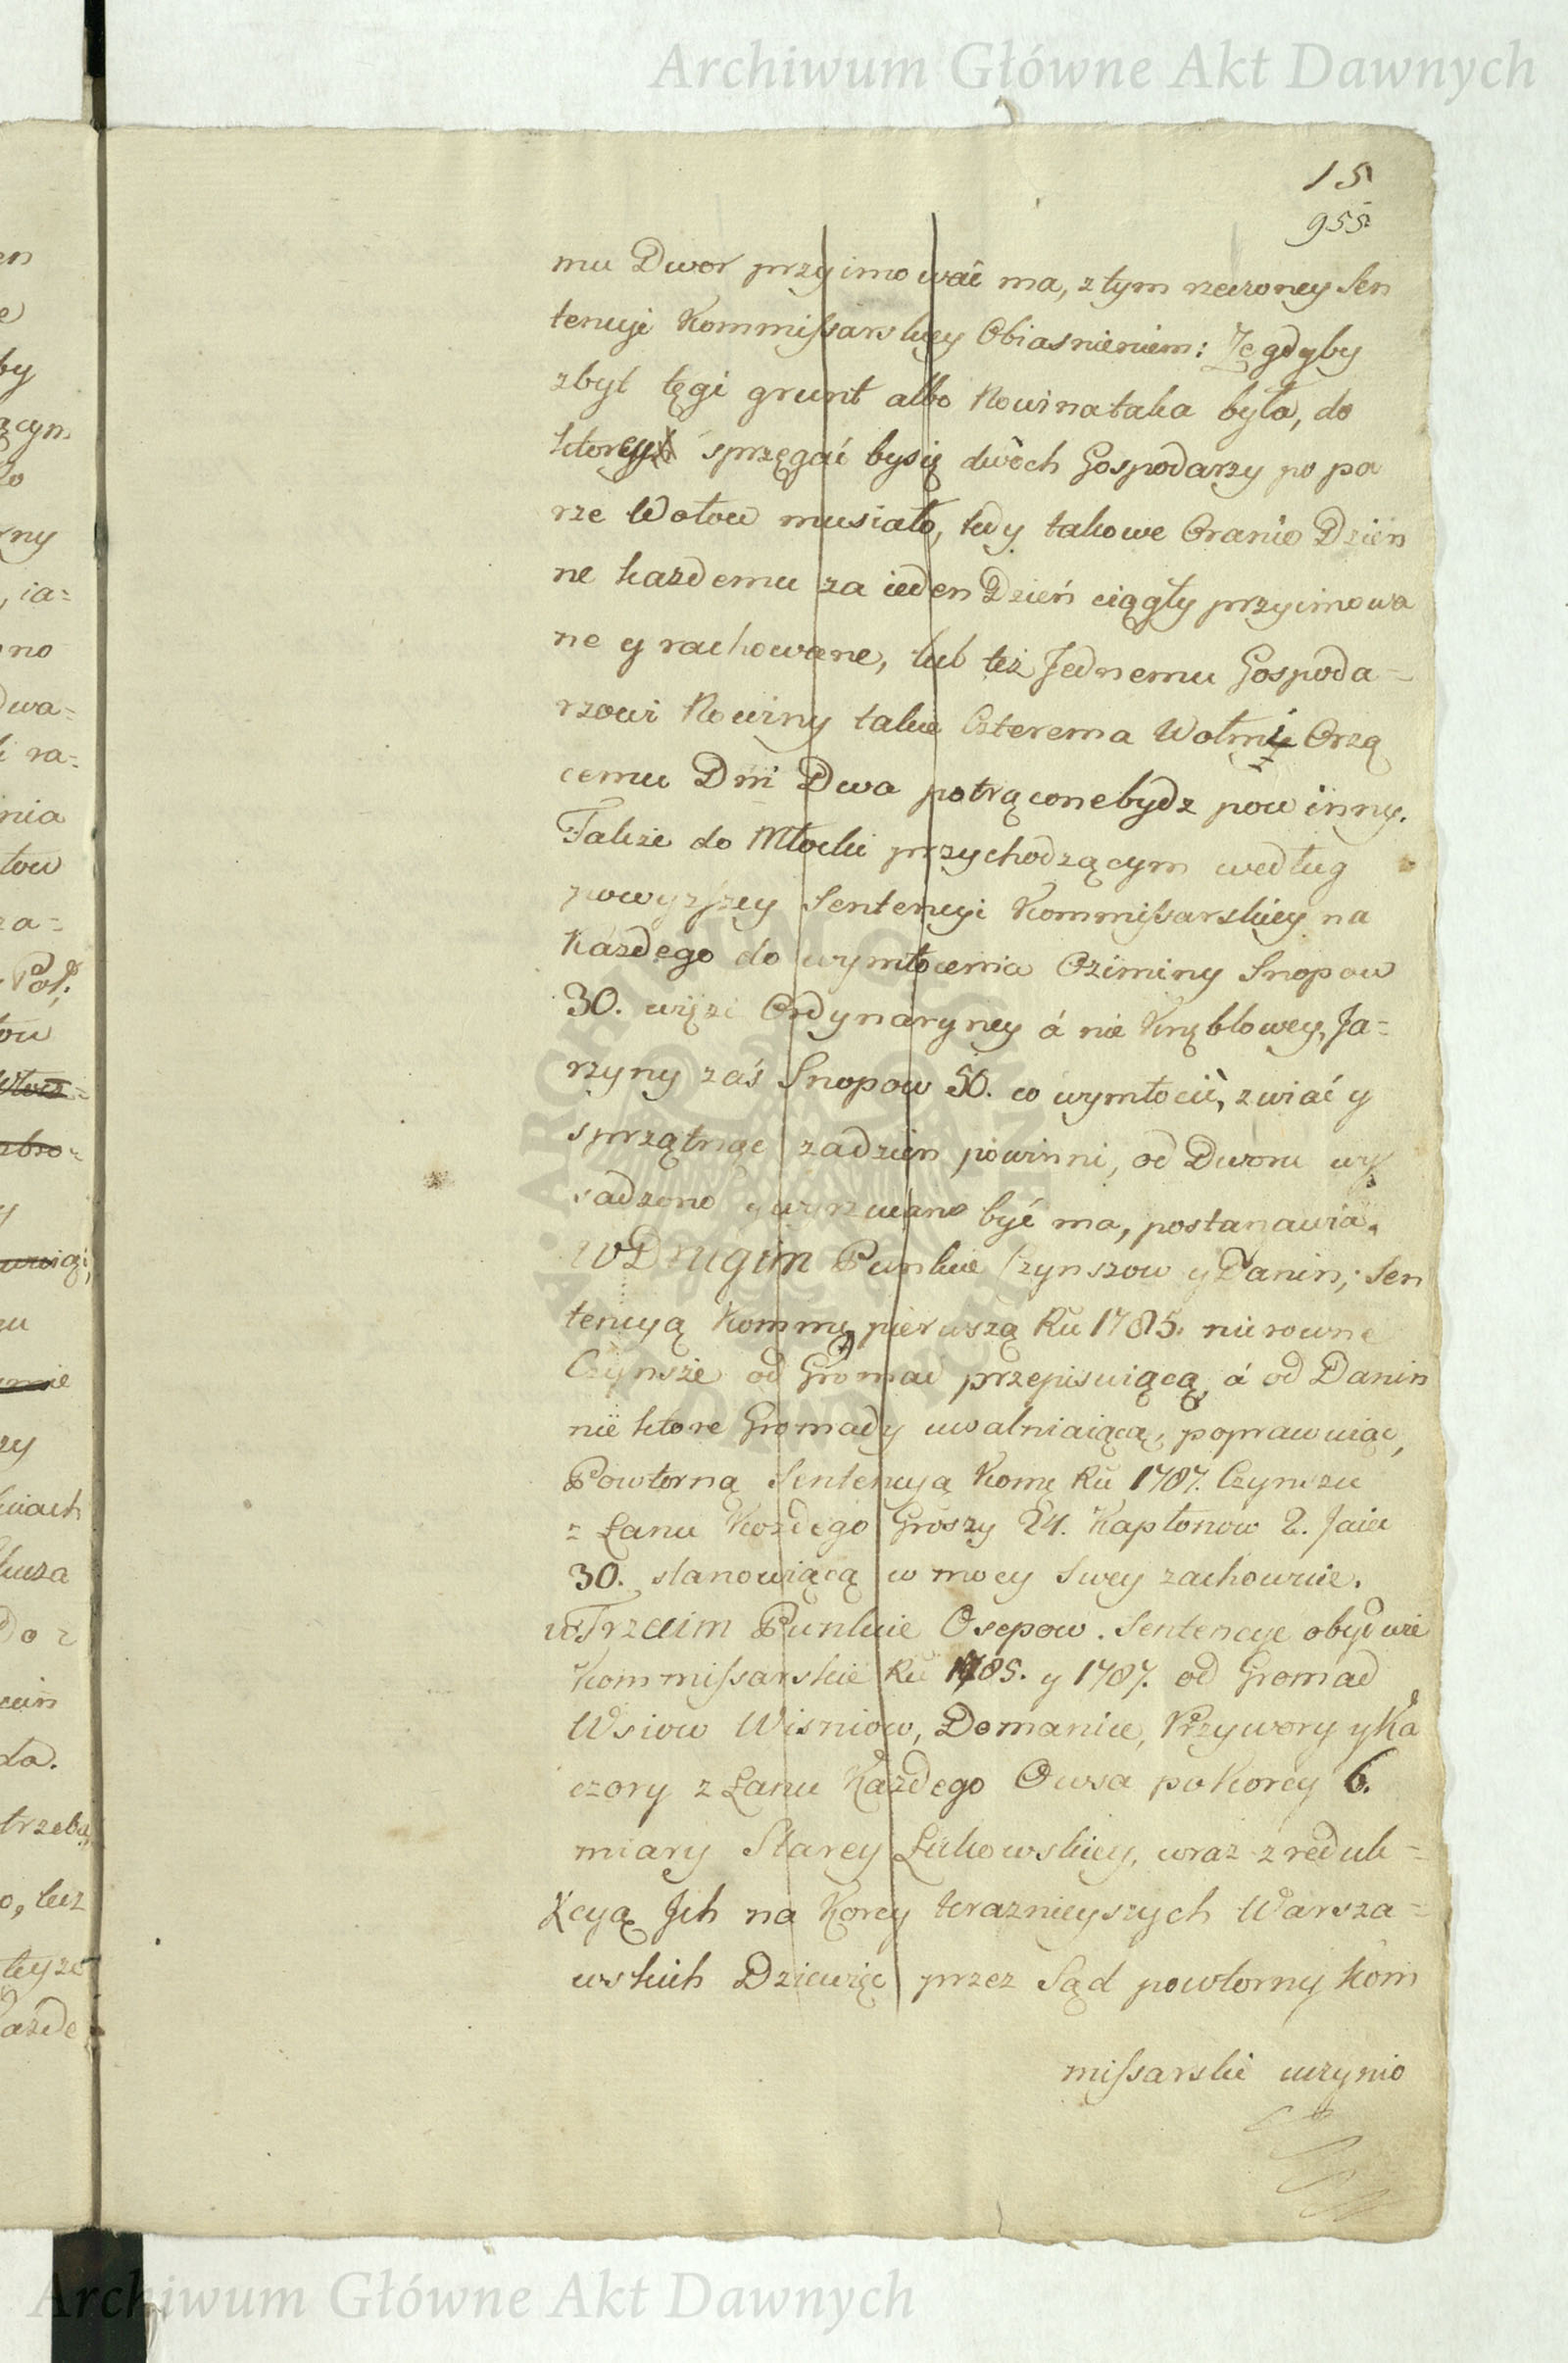 Archiwum Główne Akt Dawnych
15
955
mu Dwor przyimować ma, z tym rzeczoney Sen
tencyi Kommissarskiey Obiasnieniem: Ze gdyby
zbyt tęgi grunt albo Nowina taka była, do
ktorey sprzęgać by się dwòch Gospodarzy po pa
rze Wołow musiało, tedy takowe Oranie Dzien
ne każdemu za ieden Dzień ciągły przyimowa
ne y rachowane, lub też Jednemu Gospoda=
rzowi Nowiny takie Czterema Wołmi Orzą
cemu Dni Dwa potrącone bydz powinny.
Takze do Młocki przychodzącym według
powyzszey Sentencyi Kommissarskiey na
Każdego do wymłocenia Oziminy Snopow
30. więzi Ordynaryney á nie Kręblowey, Ja=
rzyny zaś Snopow 50. co wymłocić, zwiać y
sprzątnąc za dzien powinni, od Dworu wy
sadzono y wyrzucano być ma, postanawia.
W Drugim Punkcie Czynszow y Danin; Sen
tencyą Kommą pierwszą Ru 1785. nierowne
Czynsze od Gromad przepisuiącą, á od Danin
nie ktore Gromady uwalniaiącą, poprawuiąc,
Powtorną Sentencyą Komą Ru 1787. Czynszu
z Łanu Kozdego Groszy 24. Kapłonow 2. Jaiec
30. stanowiącą w mocy swey zachowuie.
w Trzecim Punkcie Osepow. Sentencye obydwie
Kommissarskie Ru 1785. y 1787. od Gromad
Wsiow Wisniow, Domanice, Przywory y Ka
czory z Łanu Każdego Owsa po Korcy 6.
miary Starey Łukowskiey, wraz z reduk=
kcyą Jch na Korcy teraznieyszych Warsza=
wskich Dziewięc przez Sąd powtorny Kom
missarski uczynio
Archiwum Główne Akt Dawnych